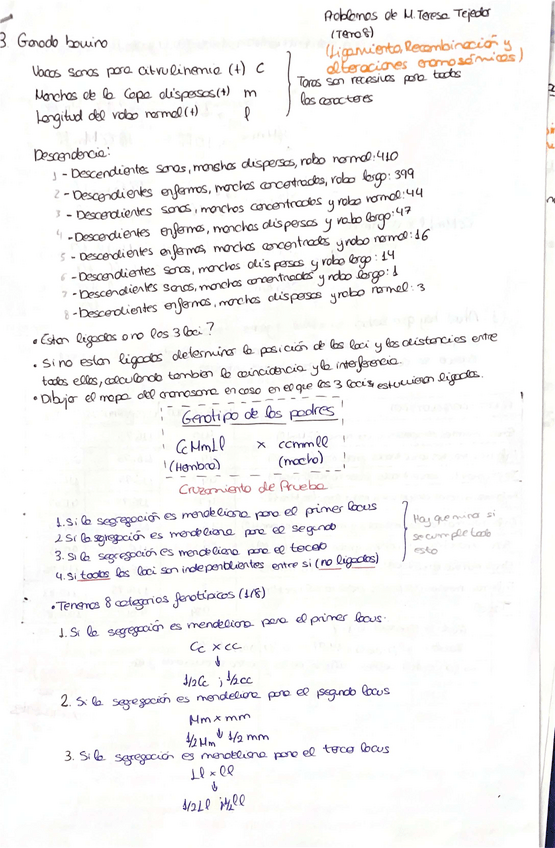 Problemas de M. Teresa Tejedor
(Tema 8)
(Ligamiento, Recombinación y
alteraciones cromosómicas)
3. Ganado bovino
Vacas sanas para citrulinemia (+) C
Manchas de la Capa dispersas (+) m
Longitud del rabo normal (+) l
Taras son recesivos para todos
los caracteres
Descendencia:
1 - Descendientes sanos, manchas dispersas, rabo normal: 410
2 - Descendientes enfermos, manchas concentradas, rabo largo: 399
3 - Descendientes sanos, manchas concentradas y rabo normal: 44
4 - Descendientes enfermos, manchas dispersas y rabo largo: 47
5 - Descendientes enfermos, manchas concentradas y rabo normal: 16
6 - Descendientes sanos, manchas dispersas y rabo largo: 14
7 - Descendientes sanos, manchas concentradas y rabo largo: 1
8 - Descendientes enfermos, manchas dispersas y rabo normal: 3
• Estan ligados o no los 3 loci?
• Si no estan ligados determinar la posición de los loci y las distancias entre
todos ellos, calculando tambien la coincidencia y la interferencia.
• Dibujar el mapa del cromosoma en caso en el que los 3 locis estuvieran ligados.
Genotipo de los padres
CcMmLl x ccmmll
(Hembra) (macho)
Cruzamiento de Prueba
1. Si la segregación es mendeliana para el primer locus
2. Si la segregación es mendeliana para el segundo
3. Si la segregación es mendeliana para el tercero
4. Si todos los loci son independientes entre si (no ligados)
Hay que mirar si
se cumple todo
esto
• Tenemos 8 categorias fenotípicas (1/8)
1. Si la segregación es mendeliana para el primer locus.
Cc x cc
↓
1/2 Cc ; 1/2 cc
2. Si la segregación es mendeliana para el segundo locus
Mm x mm
↓
1/2 Mm 1/2 mm
3. Si la segregación es mendeliana para el tercer locus
Ll x ll
↓
1/2 Ll ; 1/2 ll